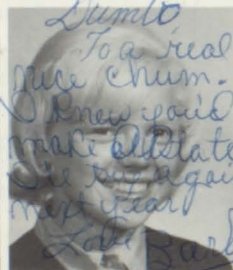 Dumbo
To a real
nice chum.
I knew you'd
make Allstate
again
next year
Love Barb